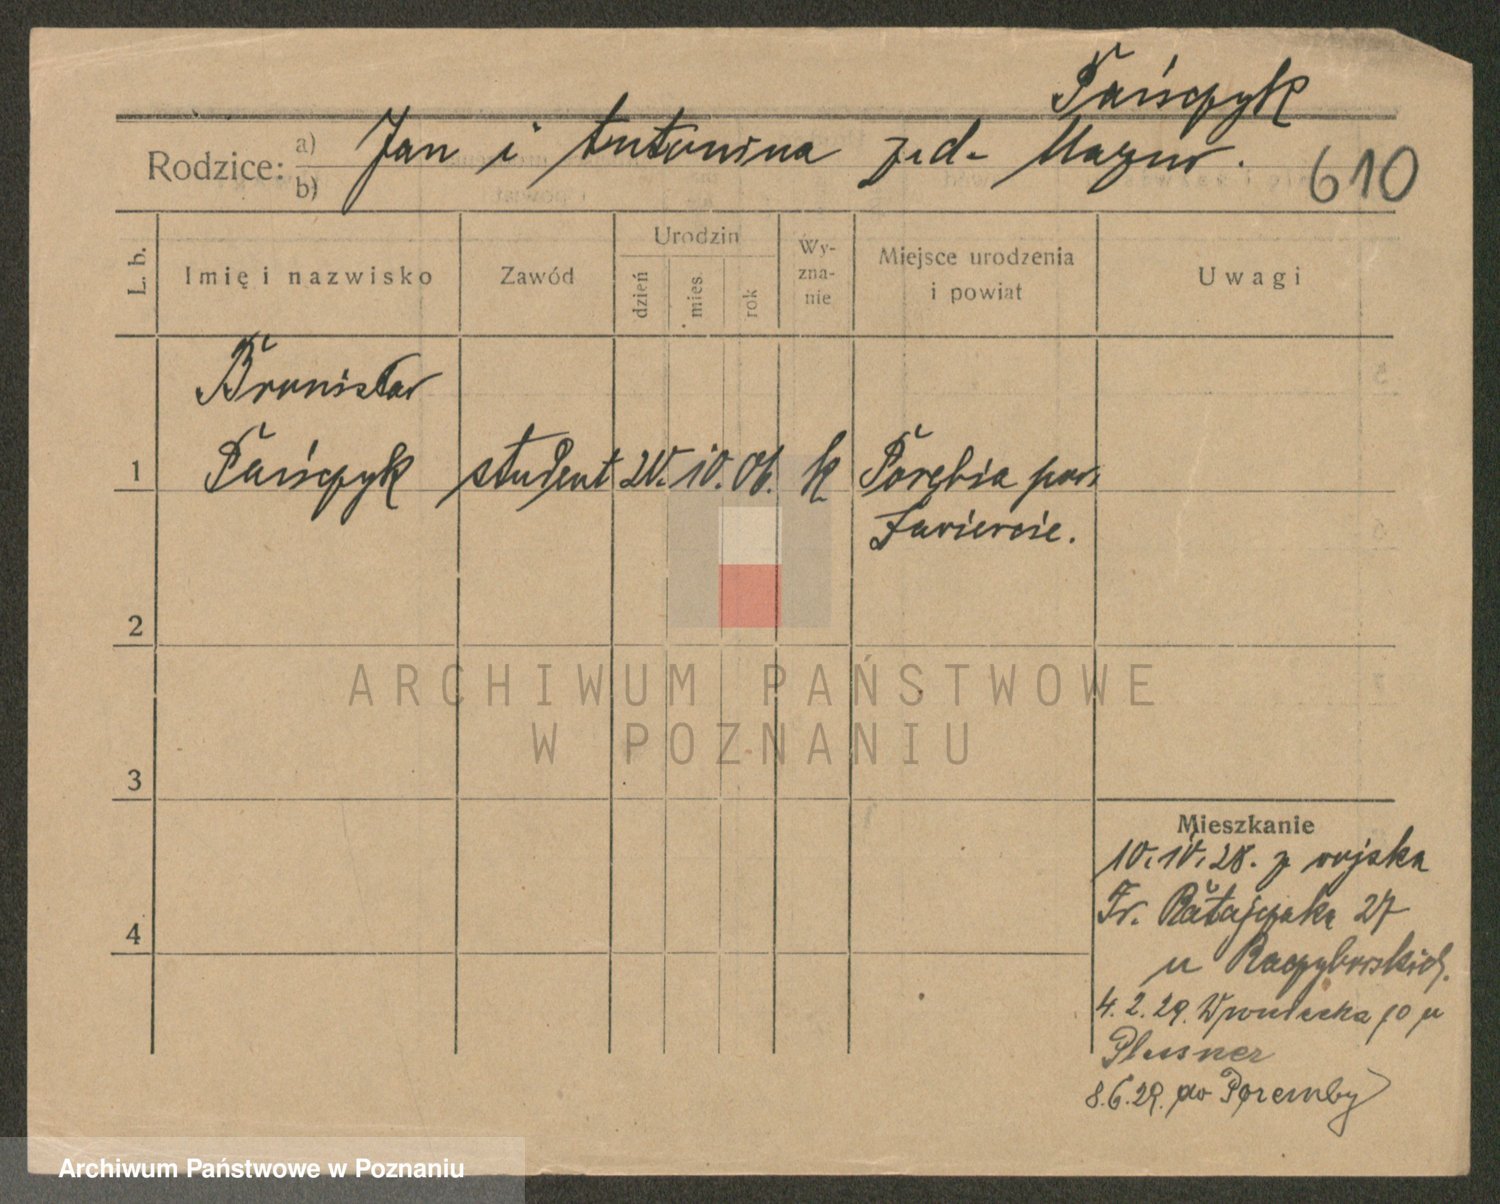 Pańczyk
Rodzice: a) Jan i Antonina z.d. Mazur.
b)
610
L. b.
Imię i nazwisko
Zawód
Urodzin
dzień
mies.
rok
Wy-
zna-
nie
Miejsce urodzenia
i powiat
Uwagi
Bronisław
1 Pańczyk student 20. 10. 06. k Porębia pow.
Zawiercie.
2
3
4
Mieszkanie
10. IV. 28. z wojska
Fr. Ratajczaka 27
u Raczyborskich.
4. 2. 29. u
Plesner
8. 6. 29. do Poremby
ARCHIWUM PAŃSTWOWE
W POZNANIU
Archiwum Państwowe w Poznaniu